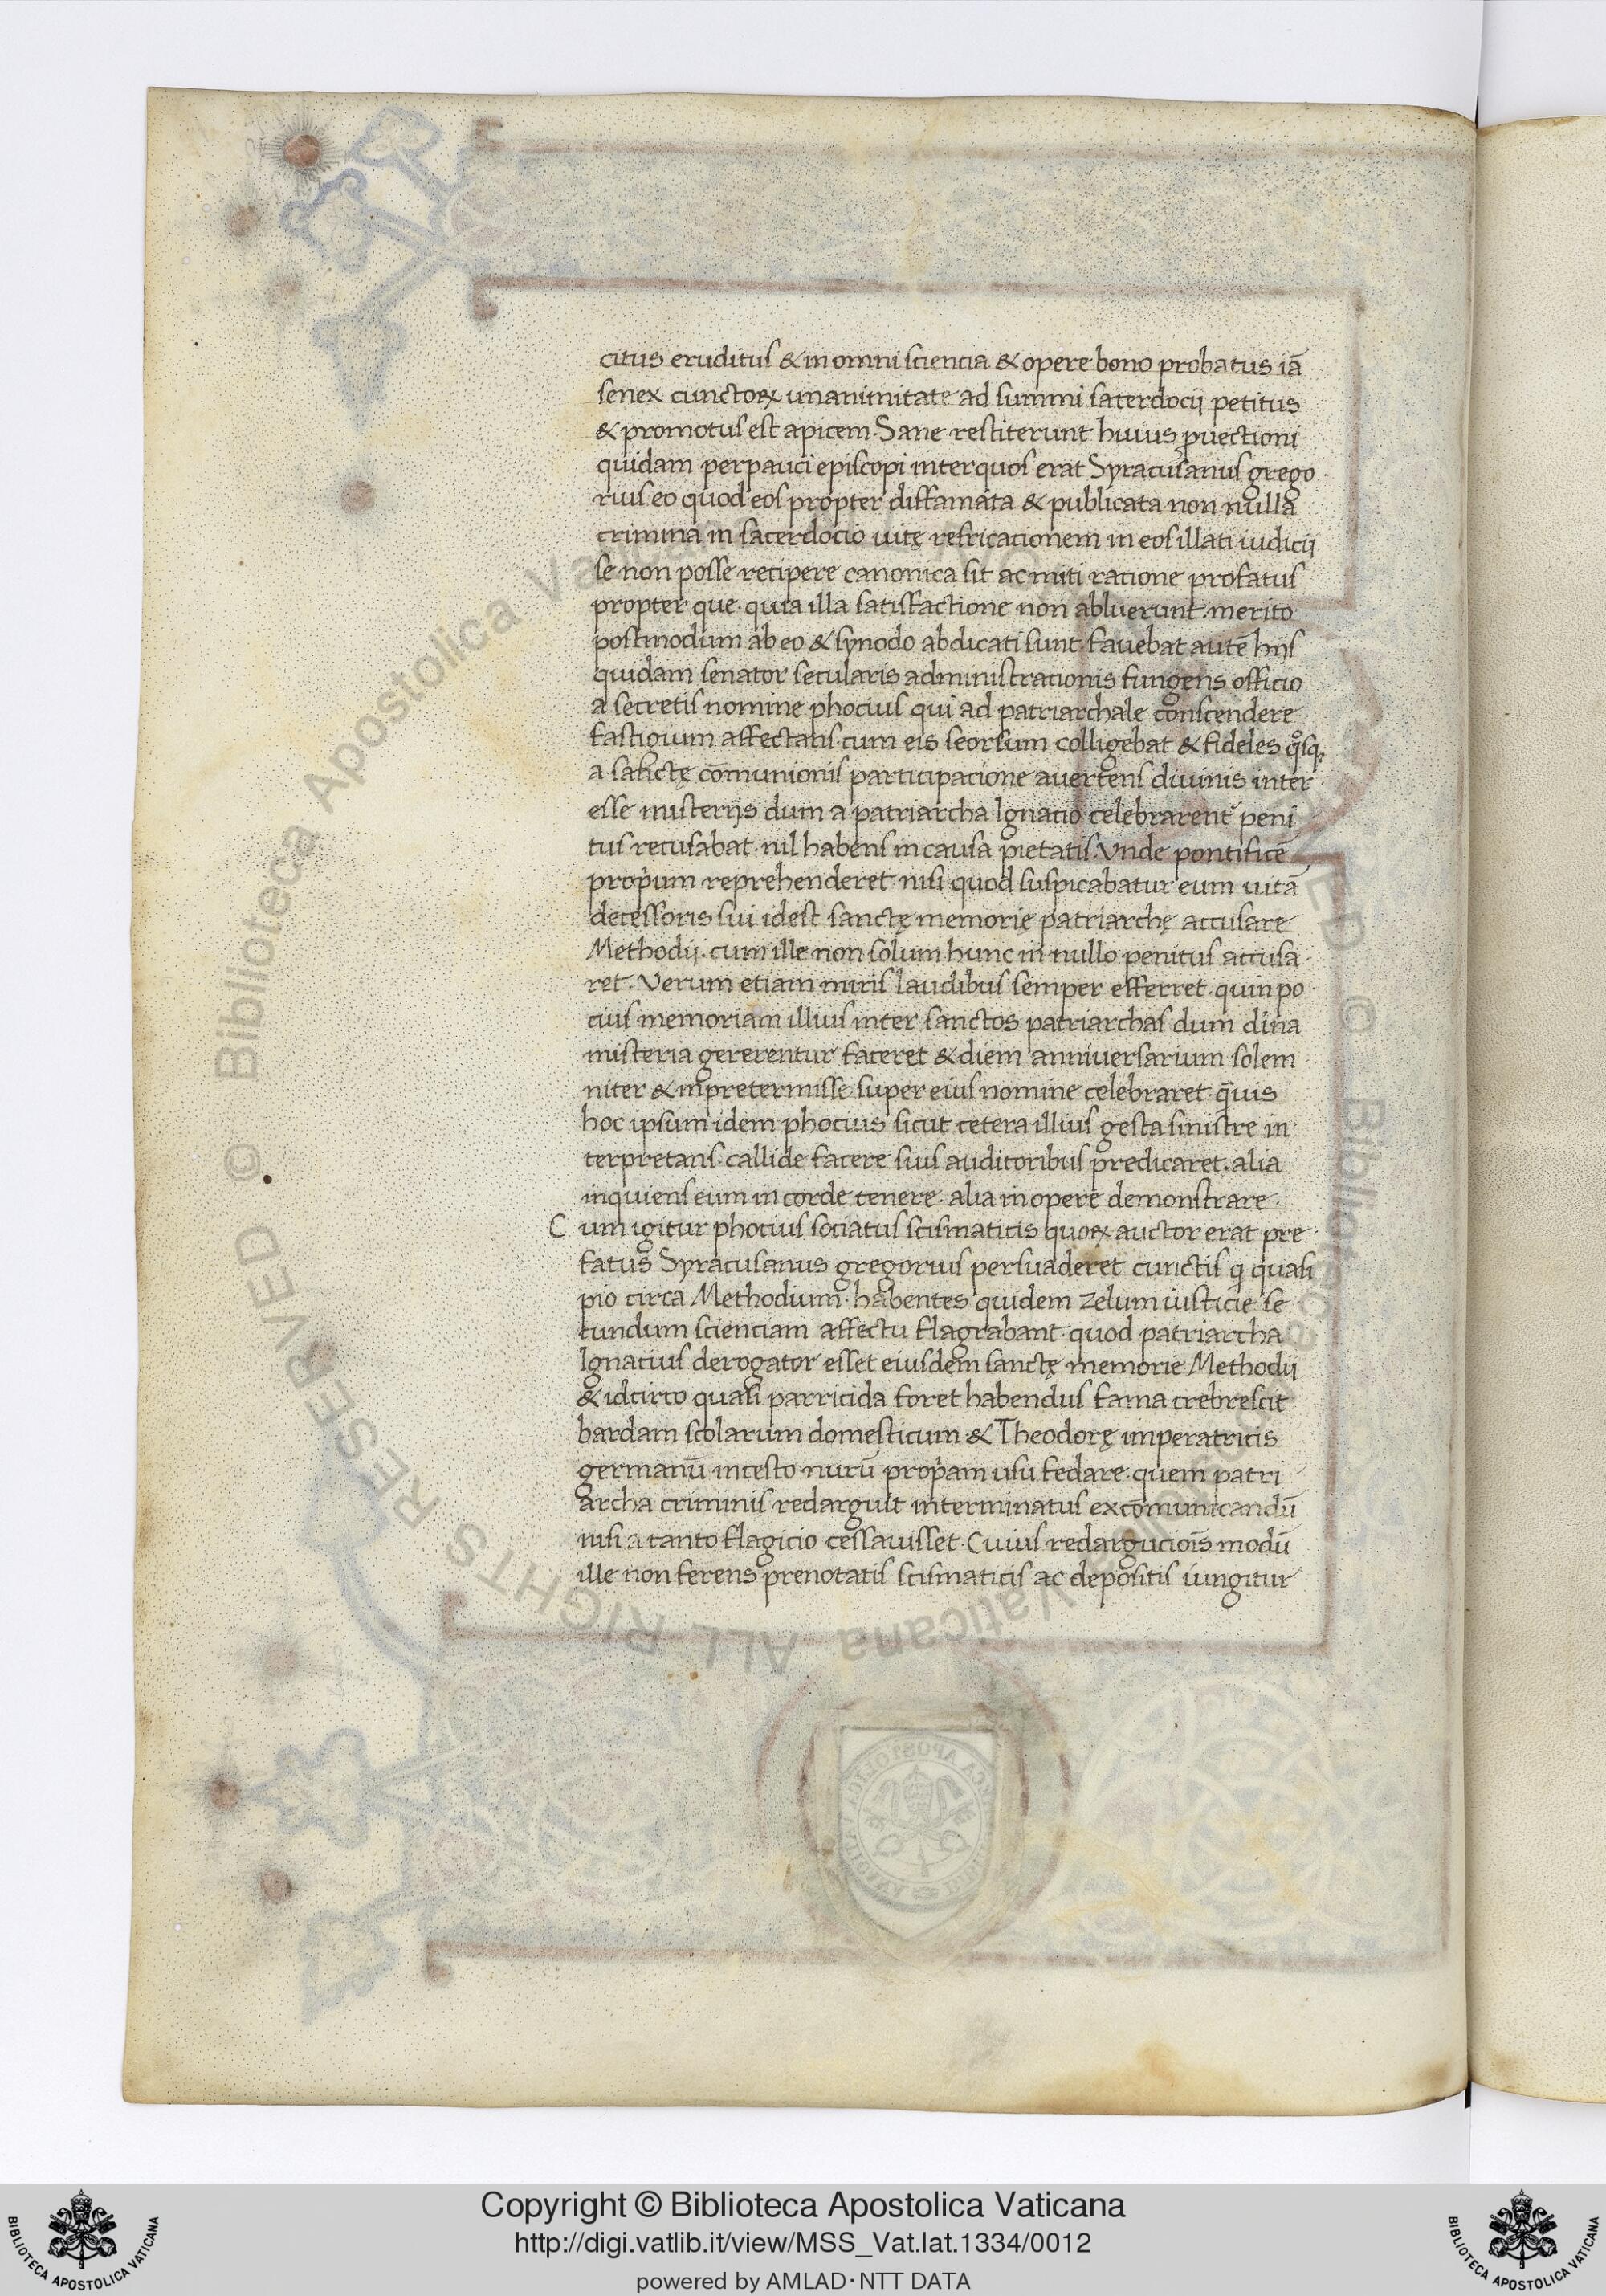 citus eruditus & in omni sciencia & opere bono probatus iā
senex cunctoꝝ unanimitate ad summi saterdocij petitus
& promotus est apicem. Sane restiterunt huius ꝓuectioni
quidam perpauci episcopi inter quos erat Syracusanus grego
rius eo quod eos propter diffamata & publicata non nulla
crimina in sacerdocio uitę refricacionem in eos illati iudicij
se non posse recipere canonica sit ac miti racione profatus
propter que. quia illa satisfactione non abluerunt. merito
postmodum ab eo & synodo abdicati sunt. fauebat autē hijs
quidam senator secularis administracionis fungens officio
a secretis nomine phocius qui ad patriarchale conscendere
fastigium affectans. cum eis seorsum colligebat & fideles qͦsq;
a sanctę cōmunionis participacione auertens diuinis inter
esse misterijs dum a patriarcha Ignacio celebrarent᷑ peni
tus recusabat. nil habens in causa pietatis. Vnde pontificē
proprium reprehenderet nisi quod suspicabatur eum uitā
decessoris sui idest sanctę memorię patriarchę accusare
Methodij. cum ille non solum hunc in nullo penitus accusa
ret. Verum etiam miris laudibus semper efferret. quin po
cius memoriam illius inter sanctos patriarchas dum diīna
misteria gererentur faceret & diem anniuersarium solem
niter & inpretermisse super eius nomine celebraret. q̄uis
hoc ipsum idem phocius sicut cetera illius gesta sinistre in
terpretans. callide facere suis auditoribus predicaret. alia
inquiens eum in corde tenere. alia in opere demonstrare.
C um igitur phocius sociatus scismaticis quoꝝ auctor erat pre
fatus Syracusanus gregorius persuaderet cunctis q quasi
pio circa Methodium. habentes quidem zelum iusticie se
cundum scienciam affectu flagrabant. quod patriarcha
Ignacius derogator esset eiusdem sanctę memorie Methodij
& idcirco quasi parricida foret habendus fama crebrescit
bardam scolarum domesticum & Theodorę imperatricis
germanū incesto nurū propriam usu fedare. quem patri
archa criminis redarguit interminatus excōmunicandū
nisi a tanto flagicio cessauisset. Cuius redarguciois̄ modū
ille non ferens prenotatis scismaticis ac depositis iungitur
© Biblioteca Apostolica Vaticana ALL RIGHTS RESERVED
Copyright © Biblioteca Apostolica Vaticana
http://digi.vatlib.it/view/MSS_Vat.lat.1334/0012
powered by AMLAD·NTT DATA
BIBLIOTECA APOSTOLICA VATICANA
BIBLIOTECA APOSTOLICA VATICANA